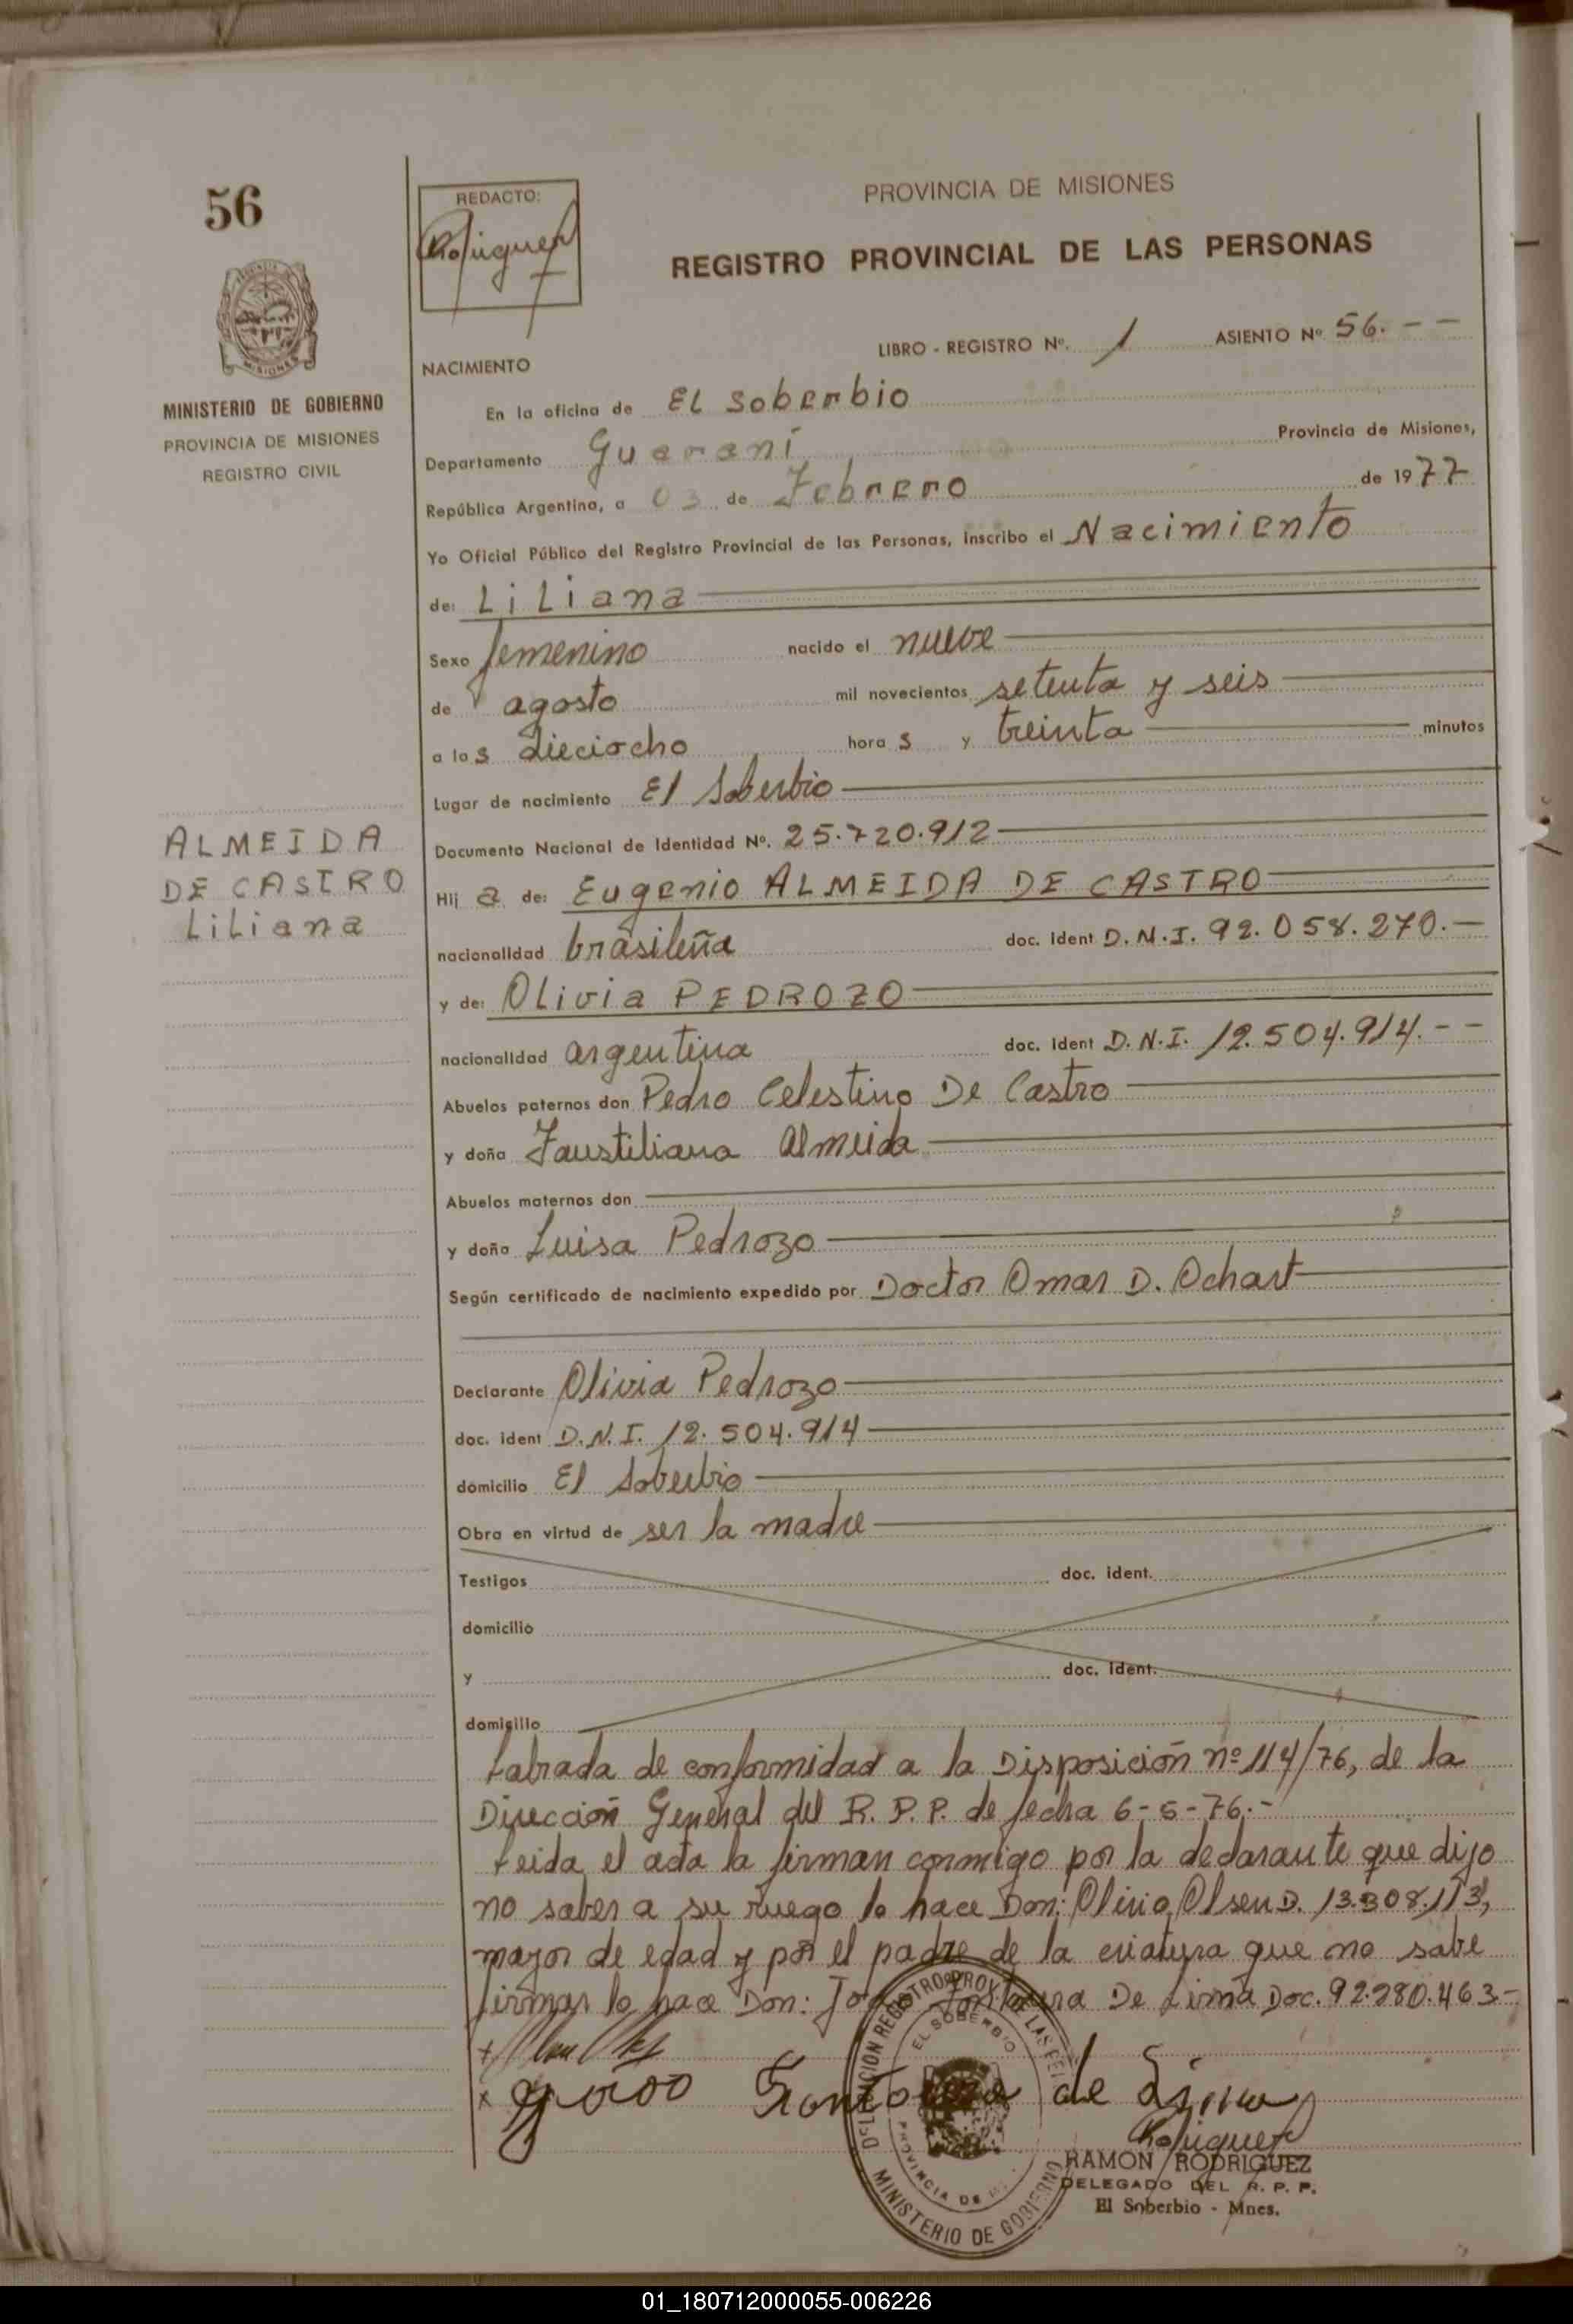 56
REDACTO:
PROVINCIA DE MISIONES
REGISTRO PROVINCIAL DE LAS PERSONAS
LIBRO - REGISTRO Nº. 1 ASIENTO Nº 56. - -
MISIONES
MINISTERIO DE GOBIERNO
PROVINCIA DE MISIONES
REGISTRO CIVIL
NACIMIENTO
En la oficina de El Soberbio
Departamento Guaraní Provincia de Misiones,
República Argentina, a 03 de Febrero de 1977
Yo Oficial Público del Registro Provincial de las Personas, inscribo el Nacimiento
de: Liliana
Sexo femenino nacido el nueve
de agosto mil novecientos setenta y seis
a las dieciocho horas y treinta minutos
Lugar de nacimiento El Soberbio
Documento Nacional de Identidad Nº. 25.720.912
ALMEIDA
DE CASTRO
Liliana
Hija de: Eugenio ALMEIDA DE CASTRO
nacionalidad brasileña doc. ident D.N.I. 92.058.270.-
y de: Olivia PEDROZO
nacionalidad argentina doc. ident D.N.I. 12.504.914.- -
Abuelos paternos don Pedro Celestino De Castro
y doña Faustiliana Almeida
Abuelos maternos don
y doña Luisa Pedrozo
Según certificado de nacimiento expedido por Doctor Omar D. Ochart
Declarante Olivia Pedrozo
doc. ident D.N.I. 12.504.914
domicilio El Soberbio
Obra en virtud de ser la madre
Testigos doc. ident.
domicilio
y doc. ident.
domicilio
Labrada de conformidad a la Disposición nº 114/76, de la
Dirección General del R.P.P. de fecha 6-5-76.-
Leida el acta la firman conmigo por la declarante que dijo
no saber a su ruego lo hace Don: Olivio Olsen D. 13.308.113,
mayor de edad y por el padre de la criatura que no sabe
firmar lo hace Don: De Lima Doc. 92.280.463-
de Lima
DELEGACION REGISTRO PROV. DE LAS PER
EL SOBERBIO
PROVINCIA DE
MINISTERIO DE GOBIERNO
RAMON RODRIGUEZ
DELEGADO DEL R. P. P.
El Soberbio - Mnes.
01_180712000055-006226